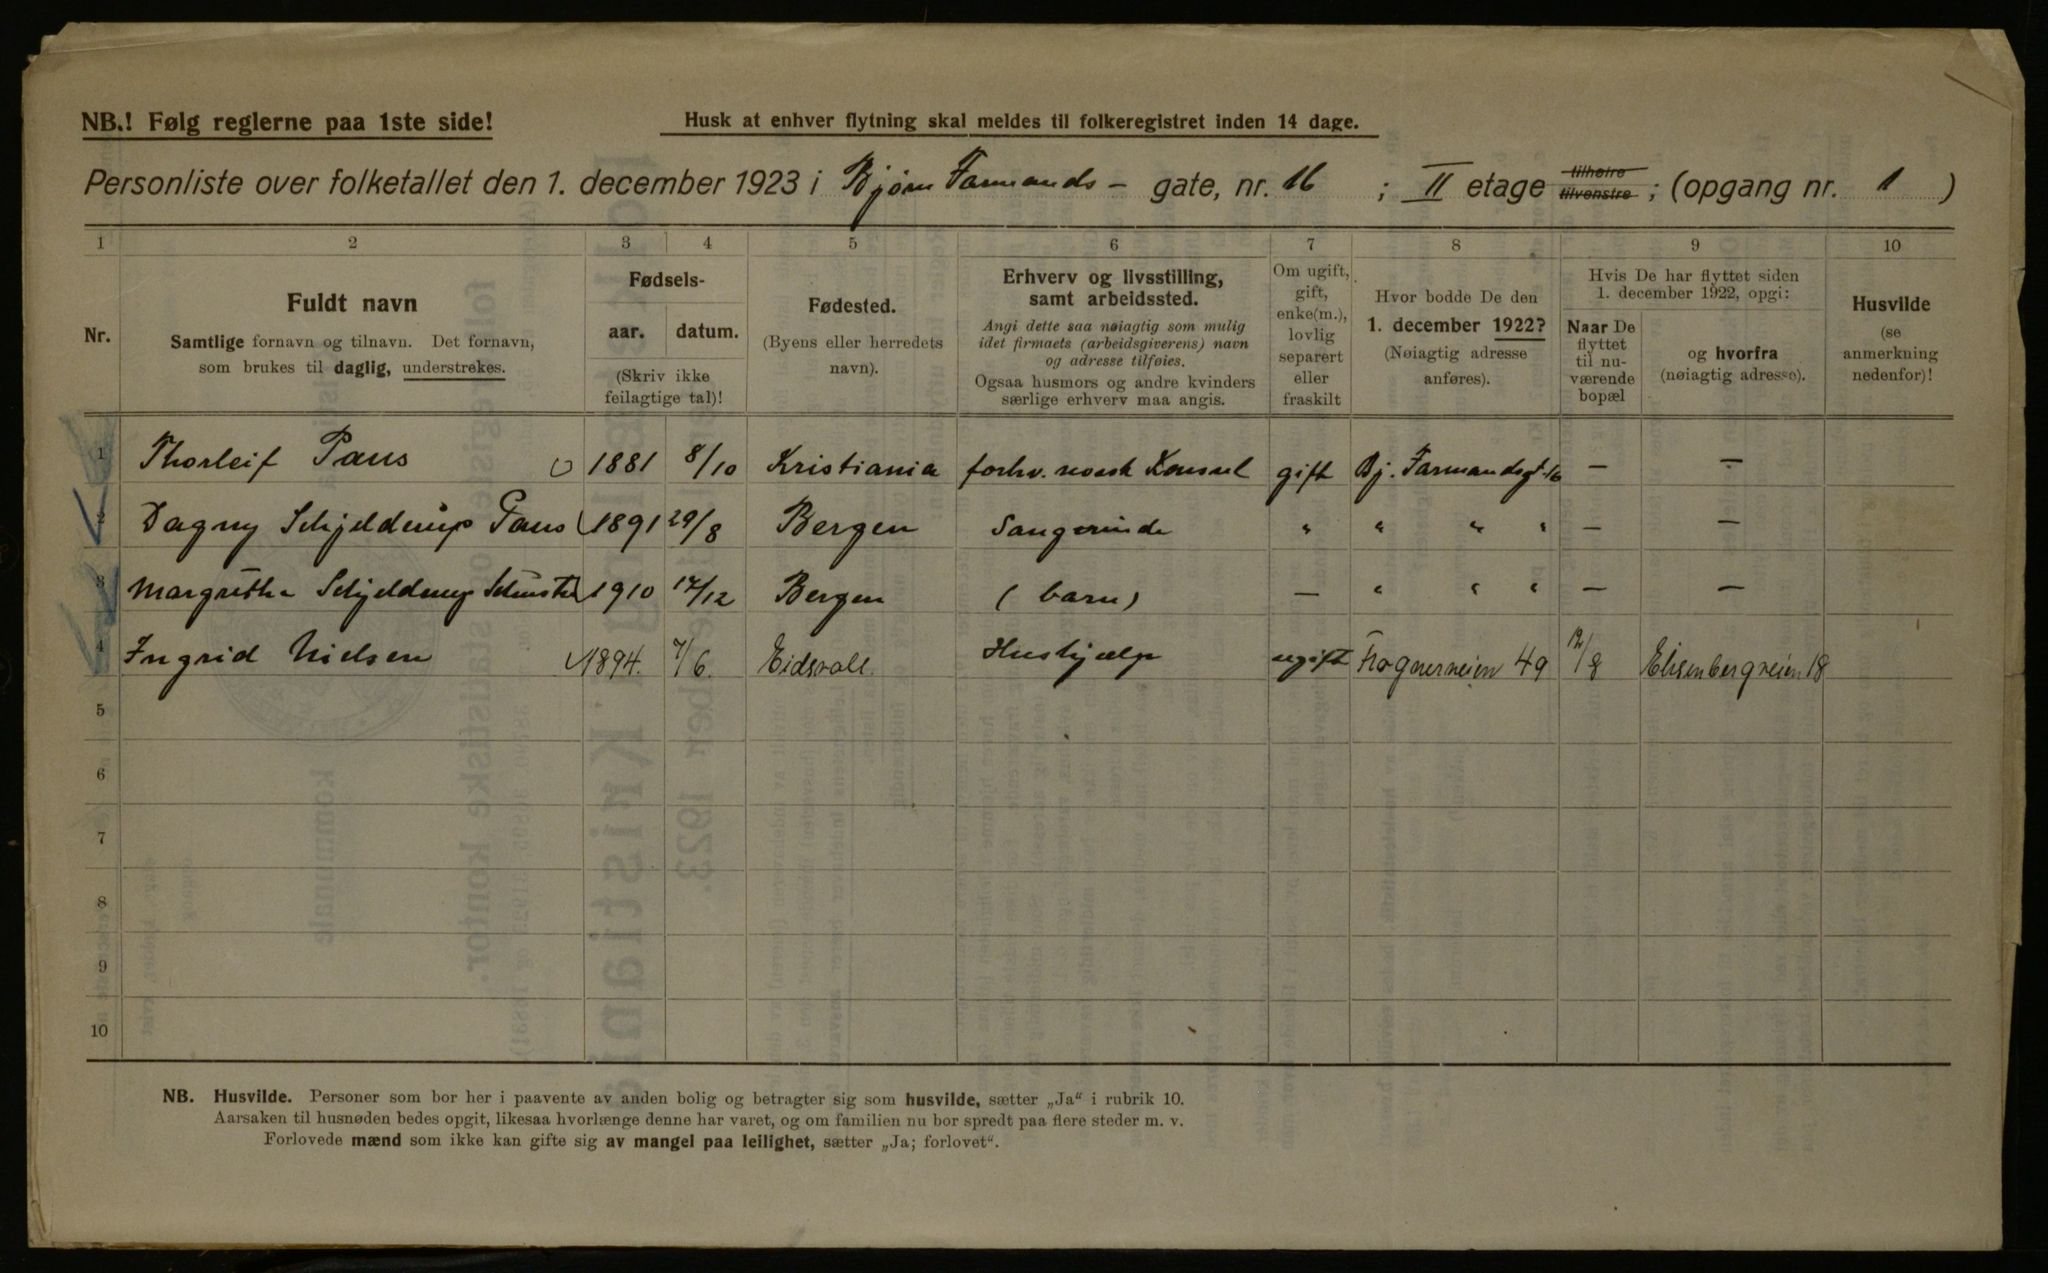 NB.! Følg reglerne paa 1ste side!
Husk at enhver flytning skal meldes til folkeregistret inden 14 dage.
Personliste over folketallet den 1. december 1923 i Bjørn Farmands - gate, nr. 16 ; II etage tilhøire tilvenstre ; (opgang nr. 1 )
1 2 3 4 5 6 7 8 9 10
Nr.
Fuldt navn
Samtlige fornavn og tilnavn. Det fornavn,
som brukes til daglig, understrekes.
Fødsels-
aar. datum.
(Skriv ikke
feilagtige tal)!
Fødested.
(Byens eller herredets
navn).
Erhverv og livsstilling,
samt arbeidssted.
Angi dette saa nøiagtig som mulig
idet firmaets (arbeidsgiverens) navn
og adresse tilføies.
Ogsaa husmors og andre kvinders
særlige erhverv maa angis.
Om ugift,
gift,
enke(m.),
lovlig
separert
eller
fraskilt
Hvor bodde De den
1. december 1922?
(Nøiagtig adresse
anføres).
Hvis De har flyttet siden
1. december 1922, opgi:
Naar De
flyttet
til nu-
værende
bopæl
og hvorfra
(nøiagtig adresse).
Husvilde
(se
anmerkning
nedenfor)!
1 Thorleif Paus 1881 8/10 Kristiania forhv. norsk Konsul gift Bj. Farmandsgt. 16 — —
2 Dagny Schjelderup Paus 1891 29/8 Bergen Sangerinde " " " " — —
3 Margrethe Schjelderup 1910 17/12 Bergen (barn) — " " " — —
4 Ingrid Nielsen 1894. 7/6. Eidsvoll. Hushjælp ugift Frognerveien 49 12/8 Elisenbergveien 18
5
6
7
8
9
10
NB. Husvilde. Personer som bor her i paavente av anden bolig og betragter sig som husvilde, sætter „Ja" i rubrik 10.
Aarsaken til husnøden bedes opgit, likesaa hvorlænge denne har varet, og om familien nu bor spredt paa flere steder m. v.
Forlovede mænd som ikke kan gifte sig av mangel paa leilighet, sætter „Ja; forlovet".